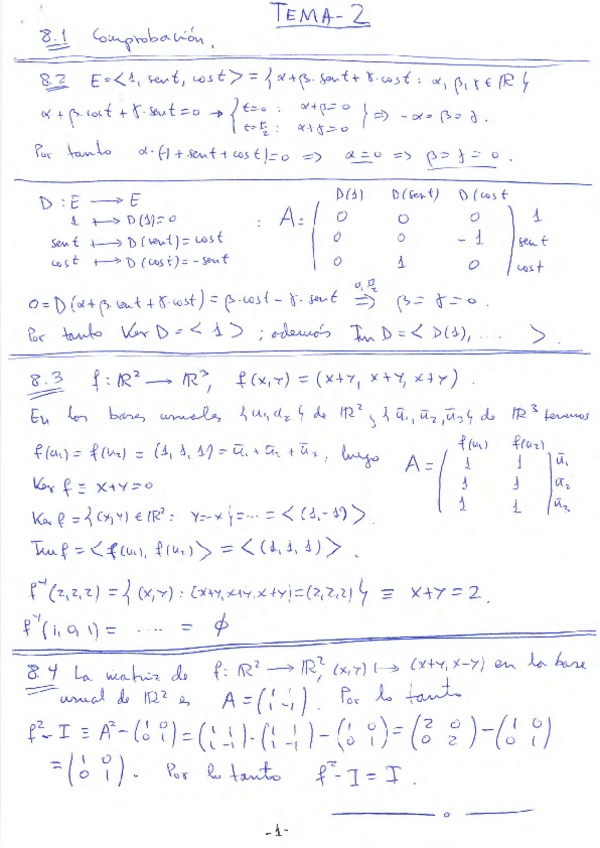 TEMA-2
8.1 Comprobación.
8.2 E=<1, sent, cost> = {α+β·sent+γ·cost : α, β, γ ∈ ℝ}
α+β·cost+γ·sent=0 → { t=0 : α+β=0 / t=π/2 : α+γ=0 } ⇒ -α=β=γ.
Por tanto α·(1+sent+cost)=0 ⇒ α=0 ⇒ β=γ=0.
D(1) D(sent) D(cost
D : E ⟶ E
1 ⟼ D(1)=0 : A= ( 0 0 0 ) 1
sent ⟼ D(sent)=cost ( 0 0 -1 ) sent
cost ⟼ D(cost)=-sent ( 0 1 0 ) cost
0=D(α+β·sent+γ·cost)=β·cost-γ·sent ⇒ (0, π/2) β=γ=0.
Por tanto Ker D=<1> ; además Im D=<D(1), ... >.
8.3 f : ℝ² ⟶ ℝ³, f(x,y) = (x+y, x+y, x+y).
En las bases usuales {u₁,u₂} de ℝ² y {ū₁,ū₂,ū₃} de ℝ³ tenemos
f(u₁) f(u₂)
f(u₁)=f(u₂)=(1,1,1)=ū₁+ū₂+ū₃, luego A= ( 1 1 ) ū₁
Ker f ≡ x+y=0 ( 1 1 ) ū₂
( 1 1 ) ū₃
Ker f={(x,y)∈ℝ² : y=-x}=...=<(1,-1)>.
Im f=<f(u₁), f(u₂)>=<(1,1,1)>.
f⁻¹(2,2,2)={(x,y) : (x+y,x+y,x+y)=(2,2,2)} ≡ x+y=2.
f⁻¹(1,0,1)= ..... = ∅
8.4 La matriz de f : ℝ² ⟶ ℝ², (x,y) ⟼ (x+y, x-y) en la base
usual de ℝ² es A=(1 1 / 1 -1). Por lo tanto
f²-I ≡ A²-(1 0 / 0 1)=(1 1 / 1 -1)·(1 1 / 1 -1)-(1 0 / 0 1)=(2 0 / 0 2)-(1 0 / 0 1)
=(1 0 / 0 1). Por lo tanto f²-I=I.
-1-